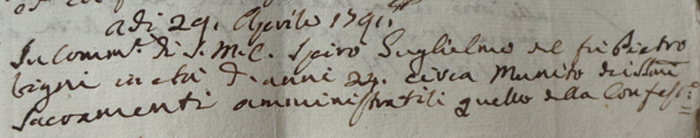 adi 29. Aprile 1791.
In Comm.e di S. M. C. spirò Guglielmo del fu Pietro
in età d'anni 29. circa Munito de SSmi
Sacramenti amministratili quello della Confess.e